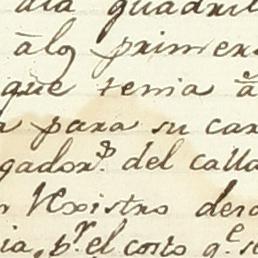 ala quadril
àlọs primer
que tenia à
para su car
gador.s del calla
Rexistro des
ia, p.r el costo q.e se